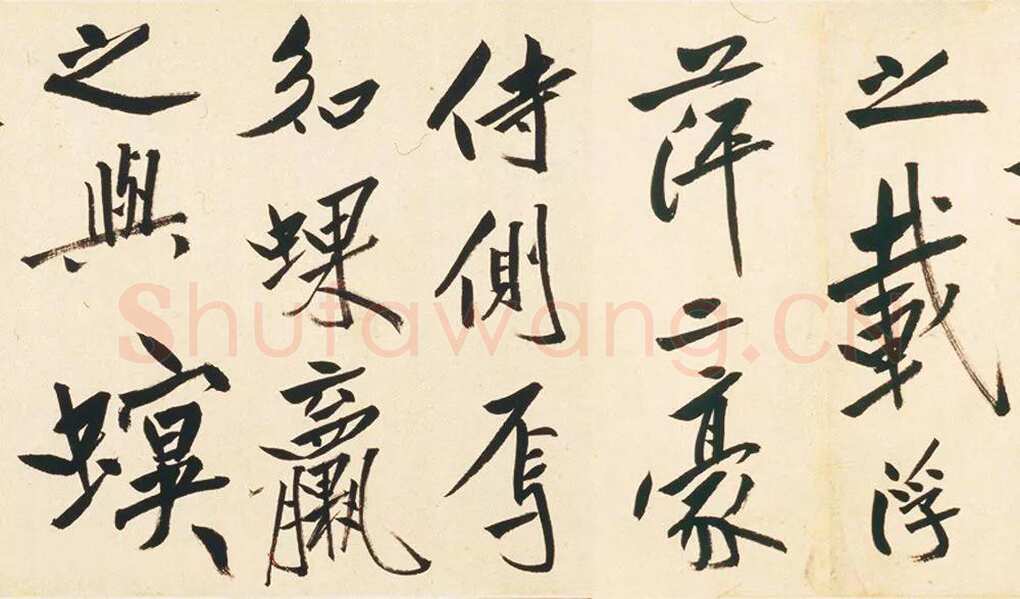 之載浮
萍二豪
侍側焉
如蜾蠃
之與螟
Shufawang.CN